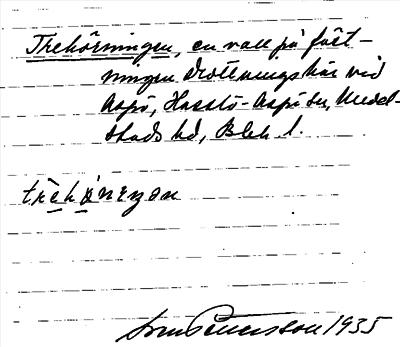 Trehörningen, en vall på fäst-
ningen Drottningskär vid
Aspö, Hasslö-Aspö sn, Medel-
stads hd, Blek l.
trèhö̀rnɪŋən
Sven Petersson 1935